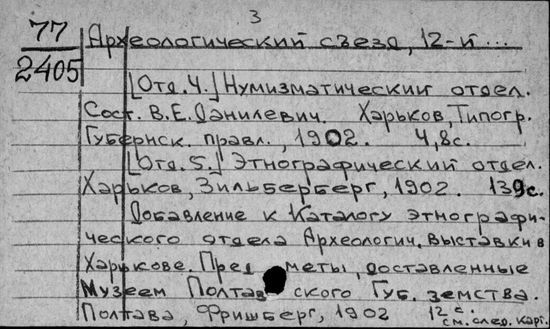 3
77
2405
Археологический съезд, 12-й ...
[Отд. 4.] Нумизматический отдел.
Сост. В.Е. Данилевич. Харьков, Типогр.
Губернск. правл., 1902. 4,8с.
[Отд. 5.] Этнографический отдел.
Харьков, Зильберберг, 1902. 139с.
Добавление к Каталогу этнографи-
ческого отдела Археологич. выставки в
Харькове. Пред меты, доставленные
Музеем Полтав ского Губ. земства.
Полтава, Фришберг, 1902 12 с.
см. след. карт.